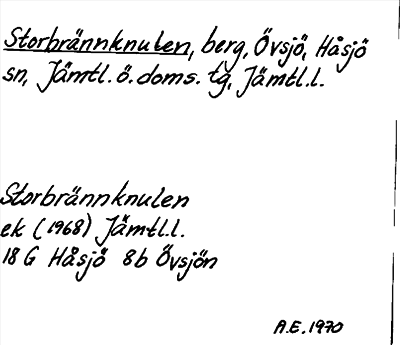 Storbrännknulen, berg, Övsjö, Håsjö
sn, Jämtl. ö. doms. tg, Jämtl.l.
Storbrännknulen
ek (1968) Jämtl.l.
18 G Håsjö 8b Övsjön
A.E. 1970